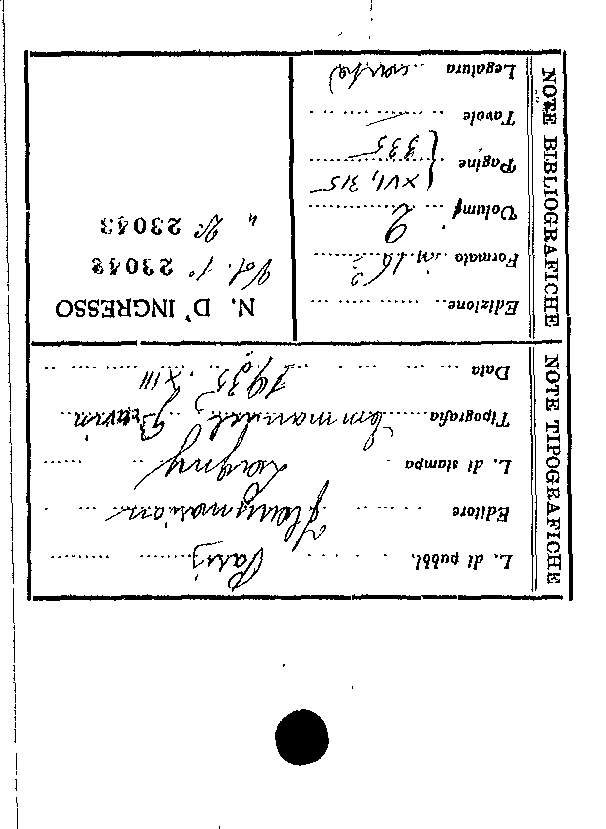 NOTE TIPOGRAFICHE
L. di pubbl. Paris
Editore Flammarion
L. di stampa Lagny
Tipografia Emmanuel Grevin
Data 1935, XIII
NOTE BIBLIOGRAFICHE
Edizione
Formato in 16º
Volumi 2
Pagine { XVI, 315
335
Tavole —
Legatura
N. D'INGRESSO
Vol. 1º 23042
" 2º 23043